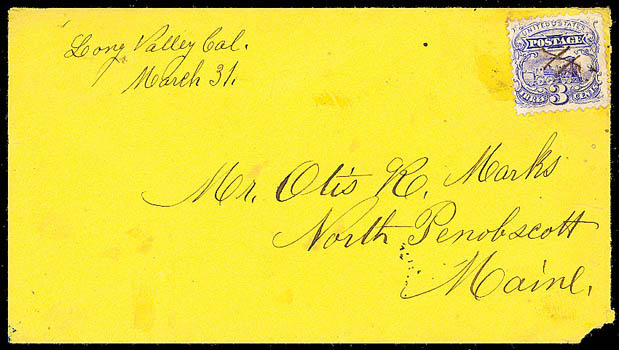 Long Valley Cal.
March 31.
UNITED STATES
POSTAGE
THREE 3 CENTS
Mr. Otis R. Marks
North Penobscott
Maine.